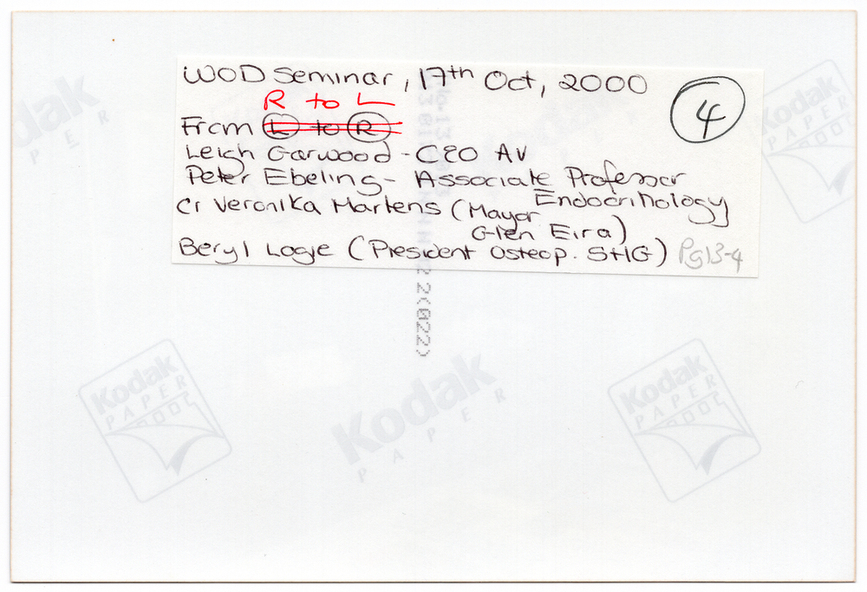 WOD Seminar, 17th Oct, 2000
④
R to L
From L to R
Leigh Garwood - CEO AV
Peter Ebeling - Associate Professor
Endocrinology
Cr Veronika Martens (Mayor
Glen Eira)
Beryl Logie (President Osteop. SHG) Pg13-4
2(022)
Kodak
PAPER
Kodak
PAPER
Kodak
PAPER
Kodak
PAPER
Kodak
PAPER